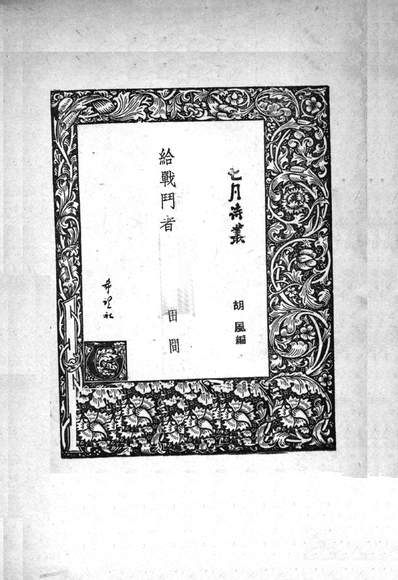 七月诗叢
胡風編
給戰鬥者
田間
希望社